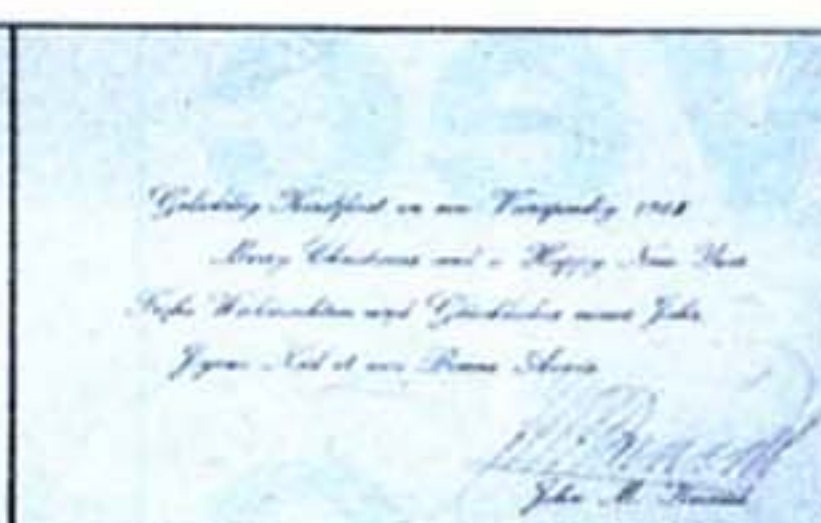 Gelukkig Kerstfeest en een Voorspoedig 1968
Merry Christmas and a Happy New Year
Frohe Weihnachten und Glückliches neues Jahr
Joyeux Noël et une Bonne Année
John M.